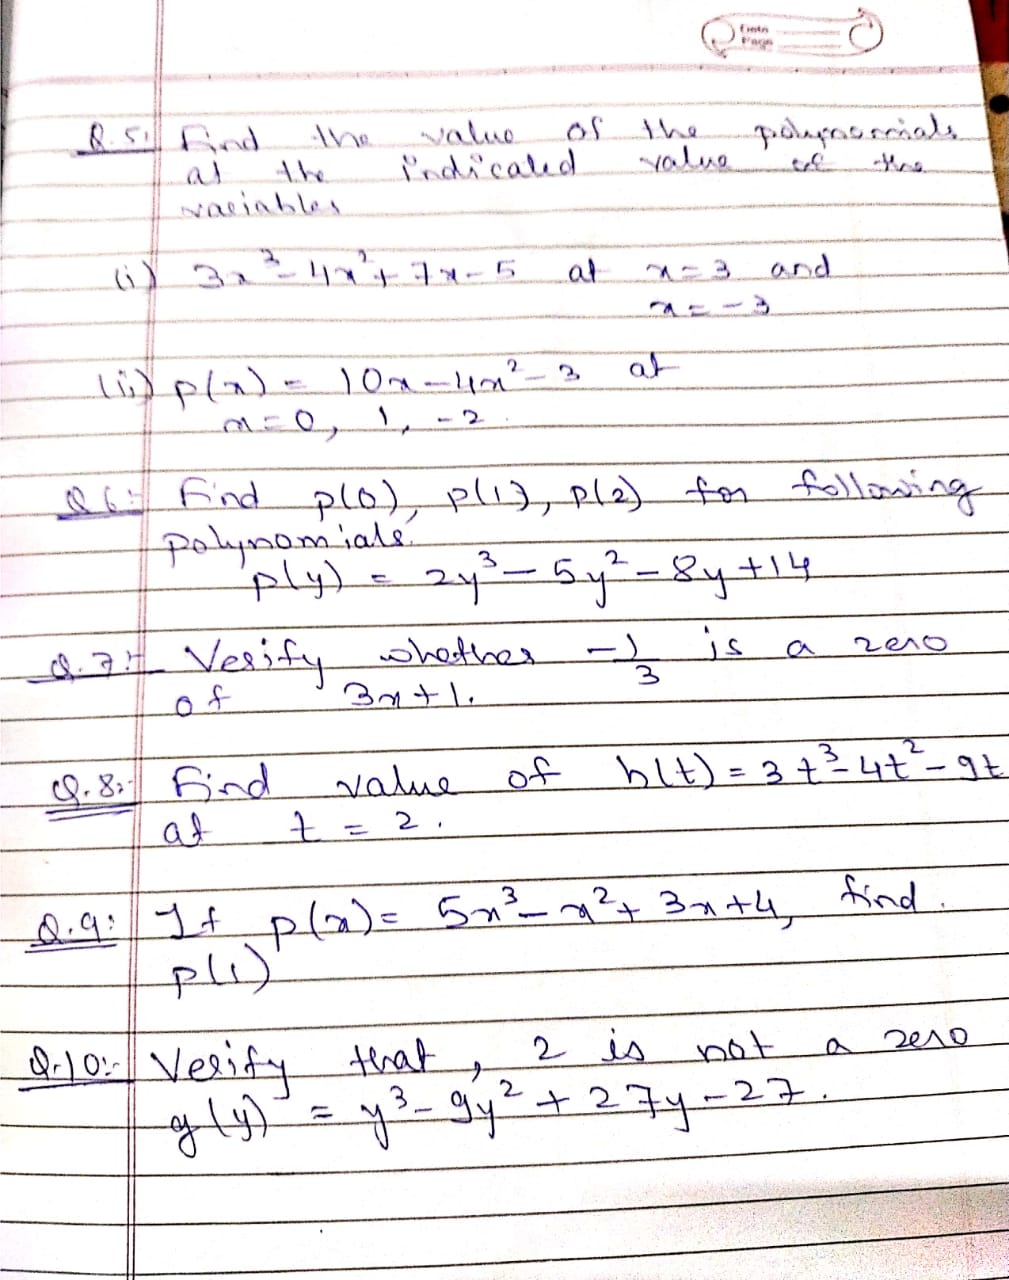 Date
Page
Q.5:| Find the value of the polynomials
at the indicated value of the
variables
(i) 3x³ - 4x² + 7x - 5 at x = 3 and
x = -3
(ii) p(x) = 10x - 4x² - 3 at
x = 0, 1, -2.
Q6:- Find p(0), p(1), p(2) for following
polynomials.
p(y) = 2y³ - 5y² - 8y + 14
Q.7:- Verify whether -1/3 is a zero
of 3x + 1.
Q.8:- Find value of h(t) = 3t³ - 4t² - 9t
at t = 2.
Q.9: If p(x) = 5x³ - x² + 3x + 4, find.
p(1)
Q.10:- Verify that, 2 is not a zero
g(y) = y³ - 9y² + 27y - 27.